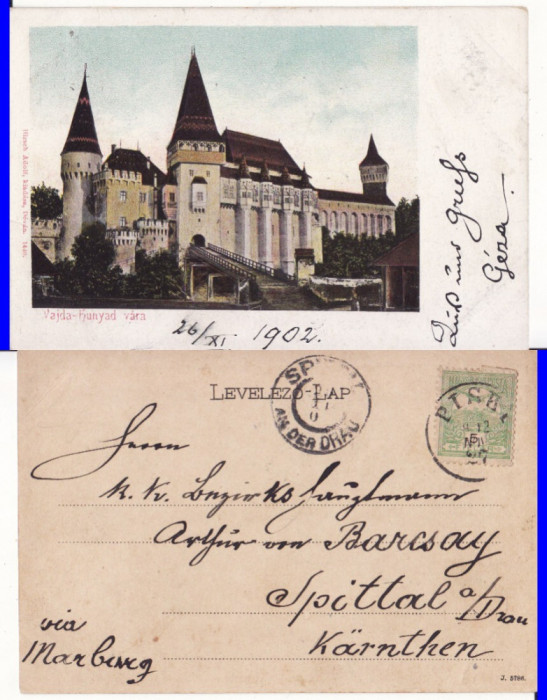 Hirsch Adolf, kiadása, Déván.
Vajda-Hunyad vára
26/XI 1902.
Kuß und Gruß
Géza.
LEVELEZŐ-LAP
SPITTAL
AN DER DRAU
PISKI
Herrn
K. K. Bezirkshauptmann
Arthur von Barcsay
Spittal a/Drau
Kärnthen
via
Marburg
J. 5786.